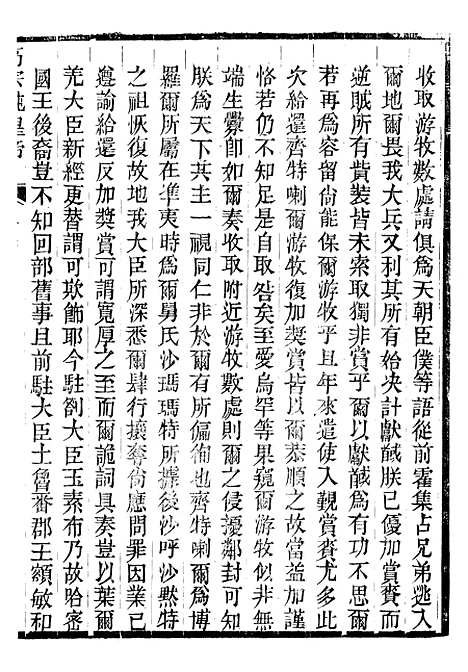 收取游牧數處請俱爲天朝臣僕等語從前霍集占兄弟逃入
爾地爾畏我大兵又利其所有始决計獻馘朕已優加賞賚而
逆賊所有貲裝皆未索取獨非賞乎爾以獻馘爲有功不思爾
若再爲容留尙能保爾游牧乎且年來遣使入覲賞賚尤多此
次給還齊特喇爾游牧復加奬賞皆以爾恭順之故當益加謹
恪若仍不知足是自取咎矣至愛烏罕等果窺爾游牧似非無
端生釁卽如爾奏收取附近游牧數處則爾之侵擾鄰封可知
朕爲天下共主一視同仁非於爾有所偏徇也齊特喇爾爲博
羅爾所屬在凖夷時爲爾舅氏沙瑪瑪特所據後沙呼沙默特
之祖恢復故地我大臣所深悉爾肆行攘奪尙應問罪因業已
遵諭給還反加奬賞可謂寛厚之至而爾詭詞具奏豈以葉爾
羌大臣新經更替謂可欺飾耶今駐劄大臣玉素布乃故哈密
國王後裔豈不知回部舊事且前駐大臣土魯番郡王額敏和
高宗純皇帝